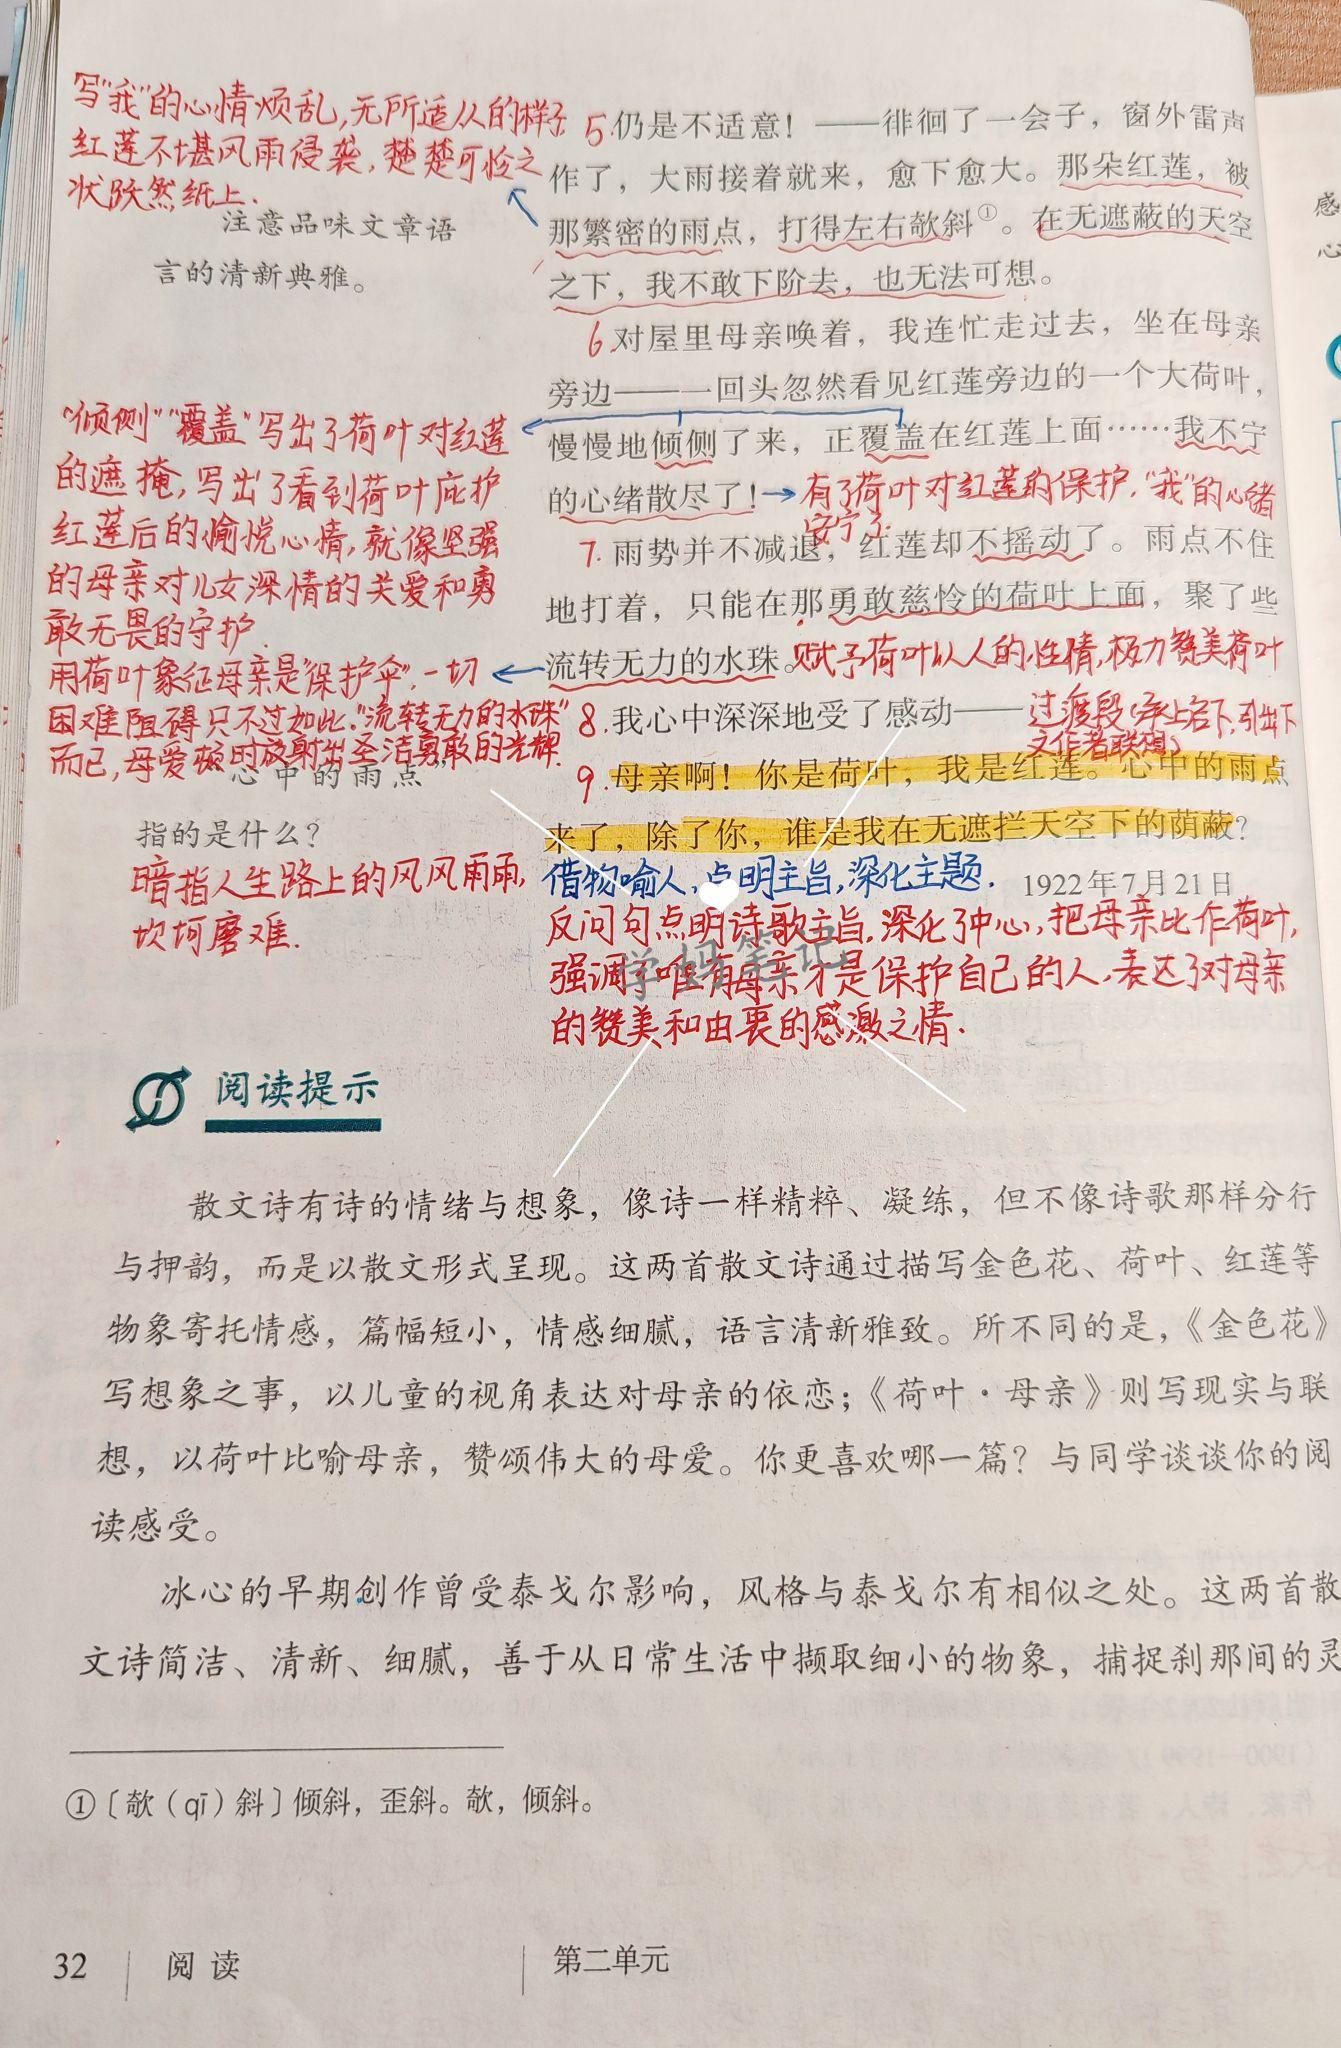 写"我"的心情烦乱,无所适从的样子
红莲不堪风雨侵袭,楚楚可怜之
状跃然纸上.
注意品味文章语
言的清新典雅。
5.仍是不适意！——徘徊了一会子，窗外雷声
作了，大雨接着就来，愈下愈大。那朵红莲，被
那繁密的雨点，打得左右欹斜①。在无遮蔽的天空
之下，我不敢下阶去，也无法可想。
6.对屋里母亲唤着，我连忙走过去，坐在母亲
旁边——一回头忽然看见红莲旁边的一个大荷叶，
慢慢地倾侧了来，正覆盖在红莲上面……我不宁
的心绪散尽了！→有了荷叶对红莲的保护,"我"的心绪
安宁了.
"倾侧""覆盖"写出了荷叶对红莲
的遮掩,写出了看到荷叶庇护
红莲后的愉悦心情,就像坚强
的母亲对儿女深情的关爱和勇
敢无畏的守护.
7.雨势并不减退，红莲却不摇动了。雨点不住
地打着，只能在那勇敢慈怜的荷叶上面，聚了些
流转无力的水珠。赋予荷叶以人的性情,极力赞美荷叶
用荷叶象征母亲是"保护伞",一切
困难阻碍只不过如此."流转无力的水珠"
而已,母爱顿时放射出圣洁勇敢的光辉.
8.我心中深深地受了感动——过渡段(承上启下,引出下
文作者联想)
9.母亲啊！你是荷叶，我是红莲。心中的雨点
来了，除了你，谁是我在无遮拦天空下的荫蔽？
心中的雨点"
指的是什么？
暗指人生路上的风风雨雨,
坎坷磨难.
借物喻人,点明主旨,深化主题.
1922年7月21日
反问句点明诗歌主旨,深化了中心,把母亲比作荷叶,
强调了唯有母亲才是保护自己的人,表达了对母亲
的赞美和由衷的感激之情.
学妈笔记
阅读提示
散文诗有诗的情绪与想象，像诗一样精粹、凝练，但不像诗歌那样分行
与押韵，而是以散文形式呈现。这两首散文诗通过描写金色花、荷叶、红莲等
物象寄托情感，篇幅短小，情感细腻，语言清新雅致。所不同的是，《金色花》
写想象之事，以儿童的视角表达对母亲的依恋；《荷叶·母亲》则写现实与联
想，以荷叶比喻母亲，赞颂伟大的母爱。你更喜欢哪一篇？与同学谈谈你的阅
读感受。
冰心的早期创作曾受泰戈尔影响，风格与泰戈尔有相似之处。这两首散
文诗简洁、清新、细腻，善于从日常生活中撷取细小的物象，捕捉刹那间的灵
①〔欹（qī）斜〕倾斜，歪斜。欹，倾斜。
32 阅读 第二单元
感
心